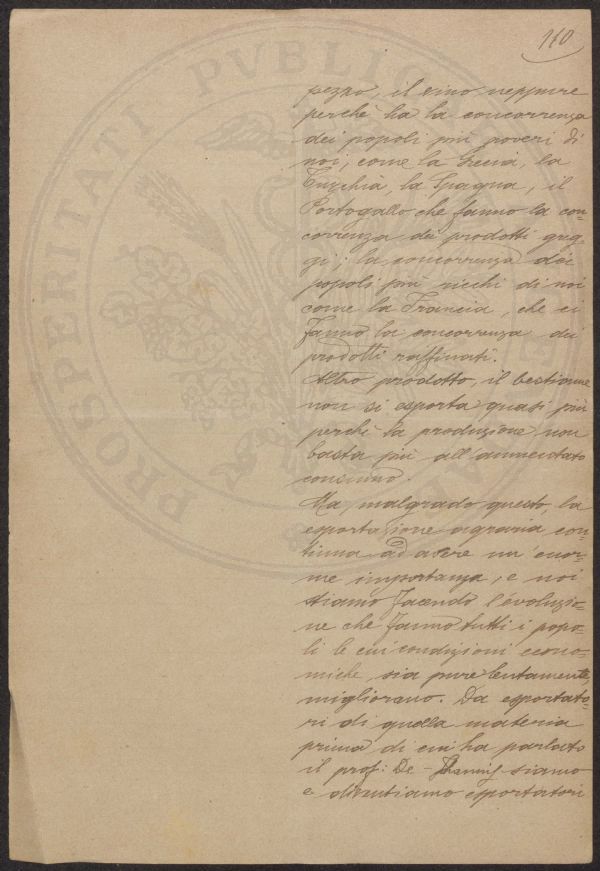 110
pezzo, il vino neppure
perchè ha la concorrenza
dei popoli più poveri di
noi, come la Grecia, la
Turchia, la Spagna, il
Portogallo che fanno la con=
correnza dei prodotti greg=
gi; la concorrenza dei
popoli più ricchi di noi
come la Francia, che ci
fanno la concorrenza dei
prodotti raffinati.
Altro prodotto, il bestiame
non si esporta quasi più
perchè la produzione non
basta più all'aumentato
consumo.
Ma, malgrado questo, la
esportazione agraria con=
tinua ad avere un'enor=
me importanza, e noi
stiamo facendo l'evoluzio=
ne che fanno tutti i popo=
li le cui condizioni econo=
miche, sia pure lentamente,
migliorano. Da esportato=
ri di quella materia
prima di cui ha parlato
il prof: De- siamo
e diventiamo esportatori
PROSPERITATI PVBLICAE